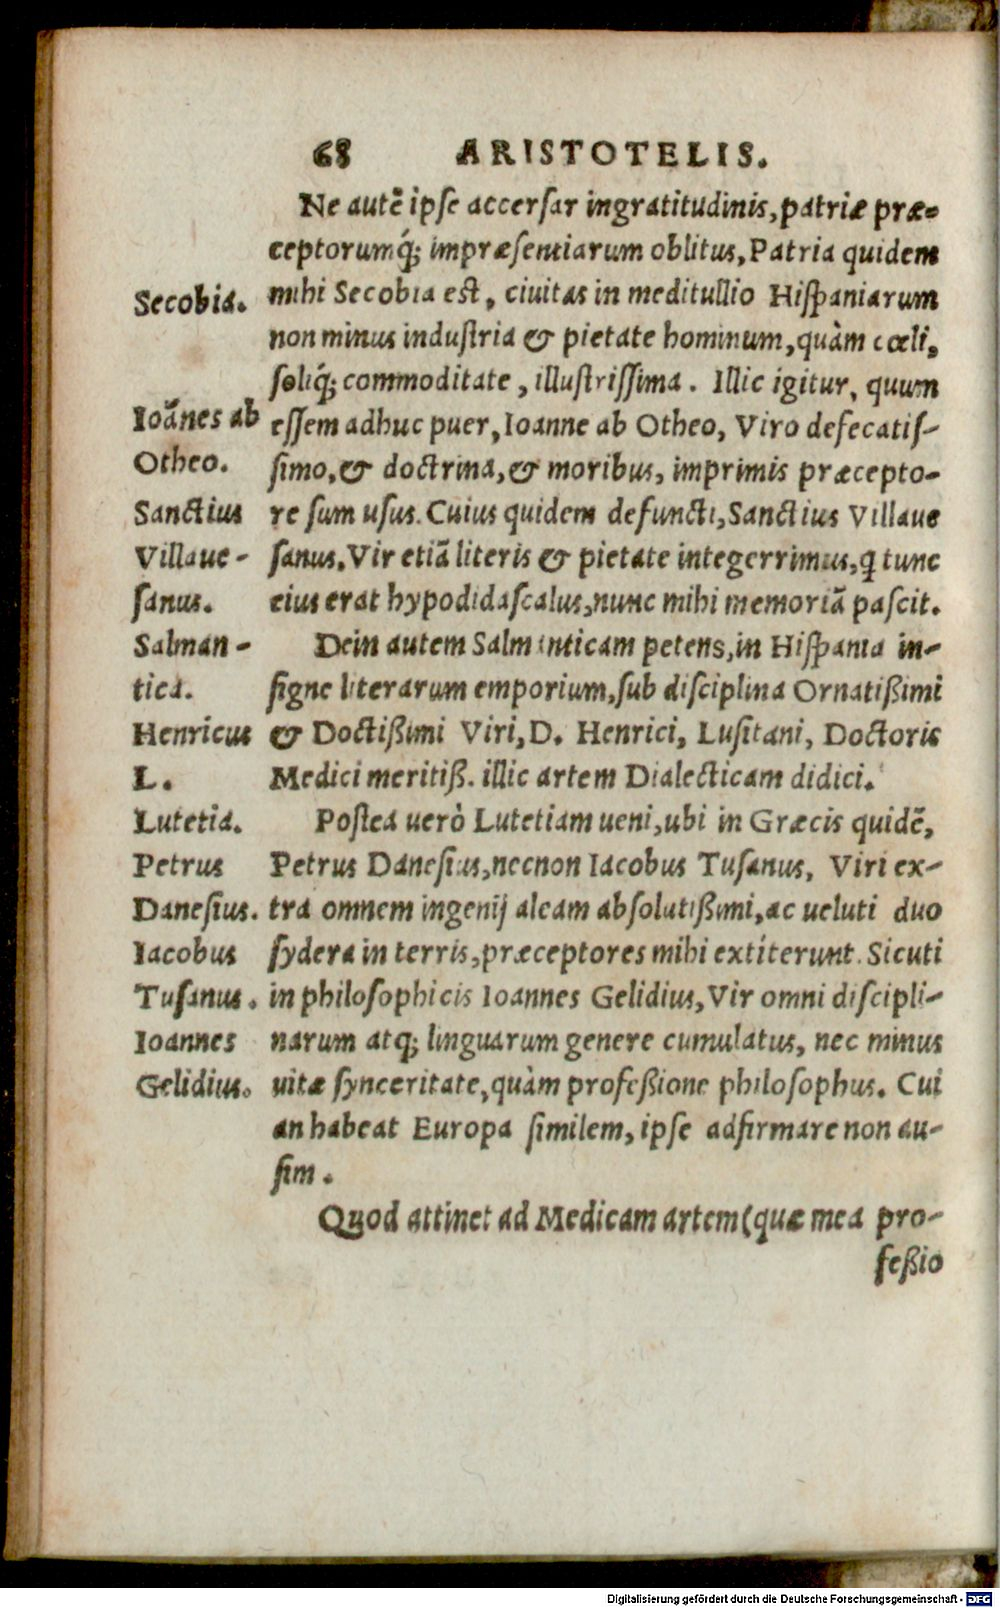 68 ARISTOTELIS.
Ne autẽ ipſe accerſar ingratitudinis, patriæ præ-
ceptorumq́; impræſentiarum oblitus, Patria quidem
mihi Secobia est, ciuitas in meditullio Hiſpaniarum
non minus induſtria & pietate hominum, quàm cœli,
ſoliq́; commoditate, illuſtriſſima. Illic igitur, quum
eſſem adhuc puer, Ioanne ab Otheo, Viro defecatiſ-
ſimo, & doctrina, & moribus, imprimis præcepto-
re ſum uſus. Cuius quidem defuncti, Sanctius Villaue
ſanus, Vir etiã literis & pietate integerrimus, q tunc
eius erat hypodidaſcalus, nunc mihi memoriã paſcit.
Dein autem Salmanticam petens, in Hiſpania in-
ſigne literarum emporium, ſub diſciplina Ornatißimi
& Doctißimi Viri, D. Henrici, Luſitani, Doctoris
Medici meritiß. illic artem Dialecticam didici.
Poſtea uerò Lutetiam ueni, ubi in Græcis quidẽ,
Petrus Daneſius, necnon Iacobus Tuſanus, Viri ex-
tra omnem ingenij aleam abſolutißimi, ac ueluti duo
ſydera in terris, præceptores mihi extiterunt. Sicuti
in philoſophicis Ioannes Gelidius, Vir omni diſcipli-
narum atq; linguarum genere cumulatus, nec minus
uitæ ſynceritate, quàm profeßione philoſophus. Cui
an habeat Europa ſimilem, ipſe adfirmare non au-
ſim.
Quod attinet ad Medicam artem (quæ mea pro-
feßio
Secobia.
Ioãnes ab
Otheo.
Sanctius
Villaue-
ſanus.
Salman-
tica.
Henricus
L.
Lutetia.
Petrus
Daneſius.
Iacobus
Tuſanus.
Ioannes
Gelidius.
Digitalisierung gefördert durch die Deutsche Forschungsgemeinschaft - DFG